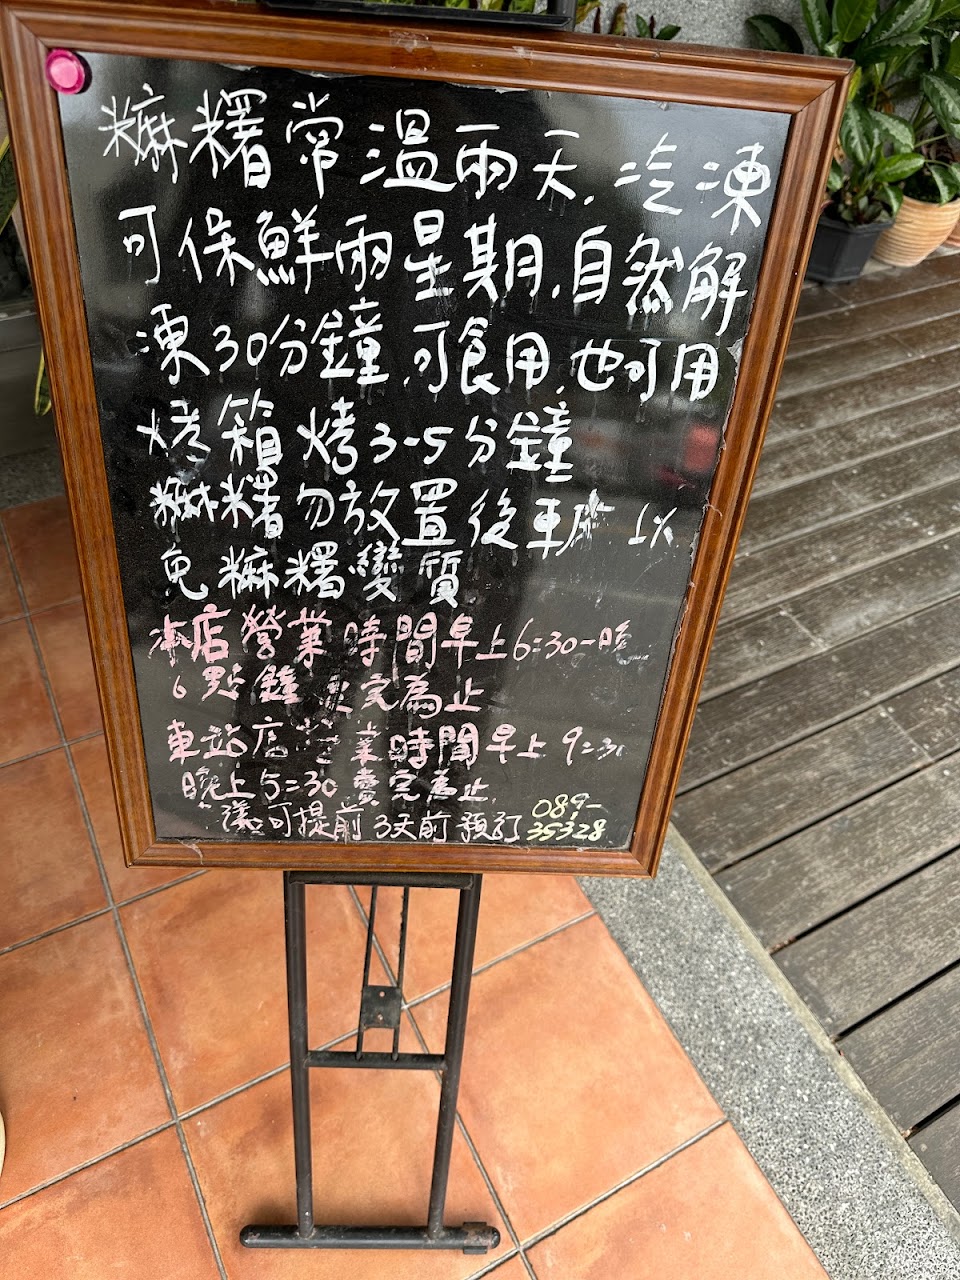 糜糬常溫兩天.冷凍
可保鮮兩星期.自然解
凍30分鐘.可食用.也可用
烤箱烤3-5分鐘
糜糬勿放置後車廂以
免糜糬變質
本店營業時間早上6:30-晚
6點鐘完為止
車站店營業時間早上9:3
晚上5:30賣完為止.
可提前3天前預訂 089-
35328